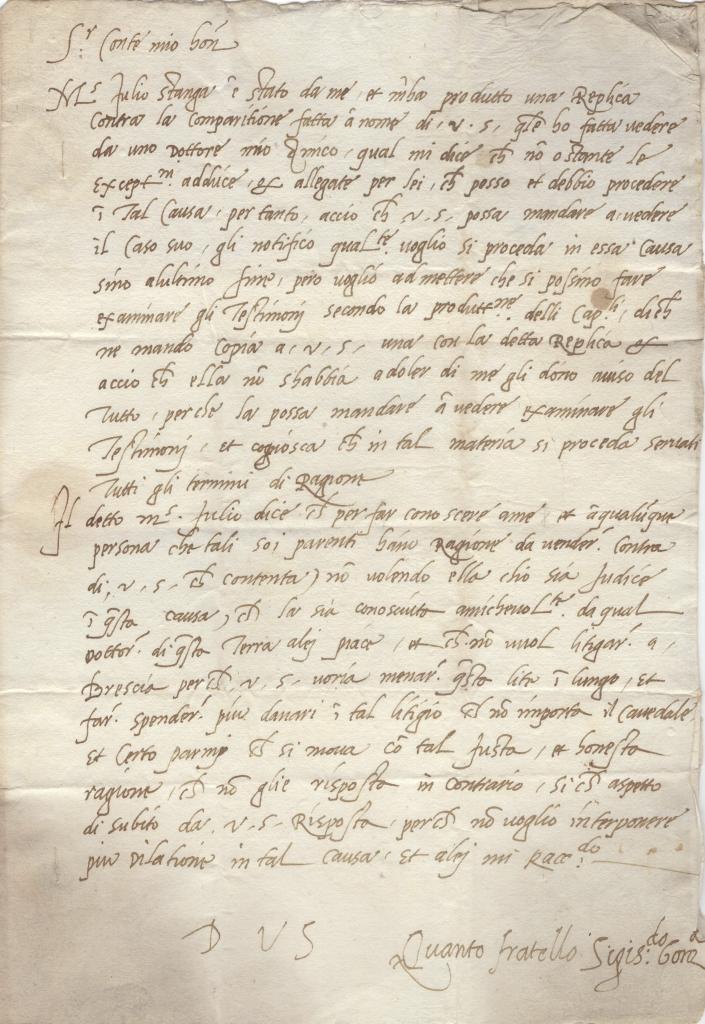 S.r Conte mio hon.
M.s Julio Stanga è stato da me, et m'ha produtto una Replica
Contra la Comparitione fatta à nome di, v. s, q̃le ho fatta vedere
da uno Dottore mio Amico, qual mi dice ch̃ nõ ostante le
Except.m adduce, et allegate per lei, ch̃ posso et debbio procedere
ĩ Tal Causa, per tanto, accio ch̃ v. s, possa mandare a vedere
il Caso suo, gli notifico qual.te voglio si proceda in essa Causa
sino alultimo fine, pero voglio admettere che si possino fare
examinare gli Testimonij secondo la produtt.ne delli Cap.li, dich̃
ne mando Copia a, v, s, una con la detta Replica et
accio ch̃ ella nõ shabbia adoler di me gli dono aviso del
Tutto, perche la possa mandare à vedere examinare gli
Testimonij, et cogñosca ch̃ in tal materia si proceda servati
Tutti gli termini di Ragione
Il detto m.s Julio dice ch̃ per far conoscere ame, et à qualũque
persona che tali soi parenti hano Ragione da vender. Contra
di, v, s, ch̃ contenta) nõ volendo ella chio sia Judice
ĩ q̃sta causa, ch̃ la sia conosciuta amichevol.te da qual
Dottor. di q̃sta Terra alej piace, et ch̃ nõ vuol litigar. a,
Brescia perch̃, v, s, voria menar. q̃sta lite ĩ lungo, et
far. spender. piu danari ĩ tal litigio ch̃ nõ importa il Cavedale
Et Certo parmi ch̃ si mova cõ tal Justa, et honesta
ragione, ch̃ nõ glie risposta in Contrario, si ch̃ aspetto
di subito da, v, s, Risposta, perch̃ nõ voglio interponere
piu Dilatione in tal Causa, Et alej mi Racc.do
D V S
Quanto fratello Sigis.do Gonz.a